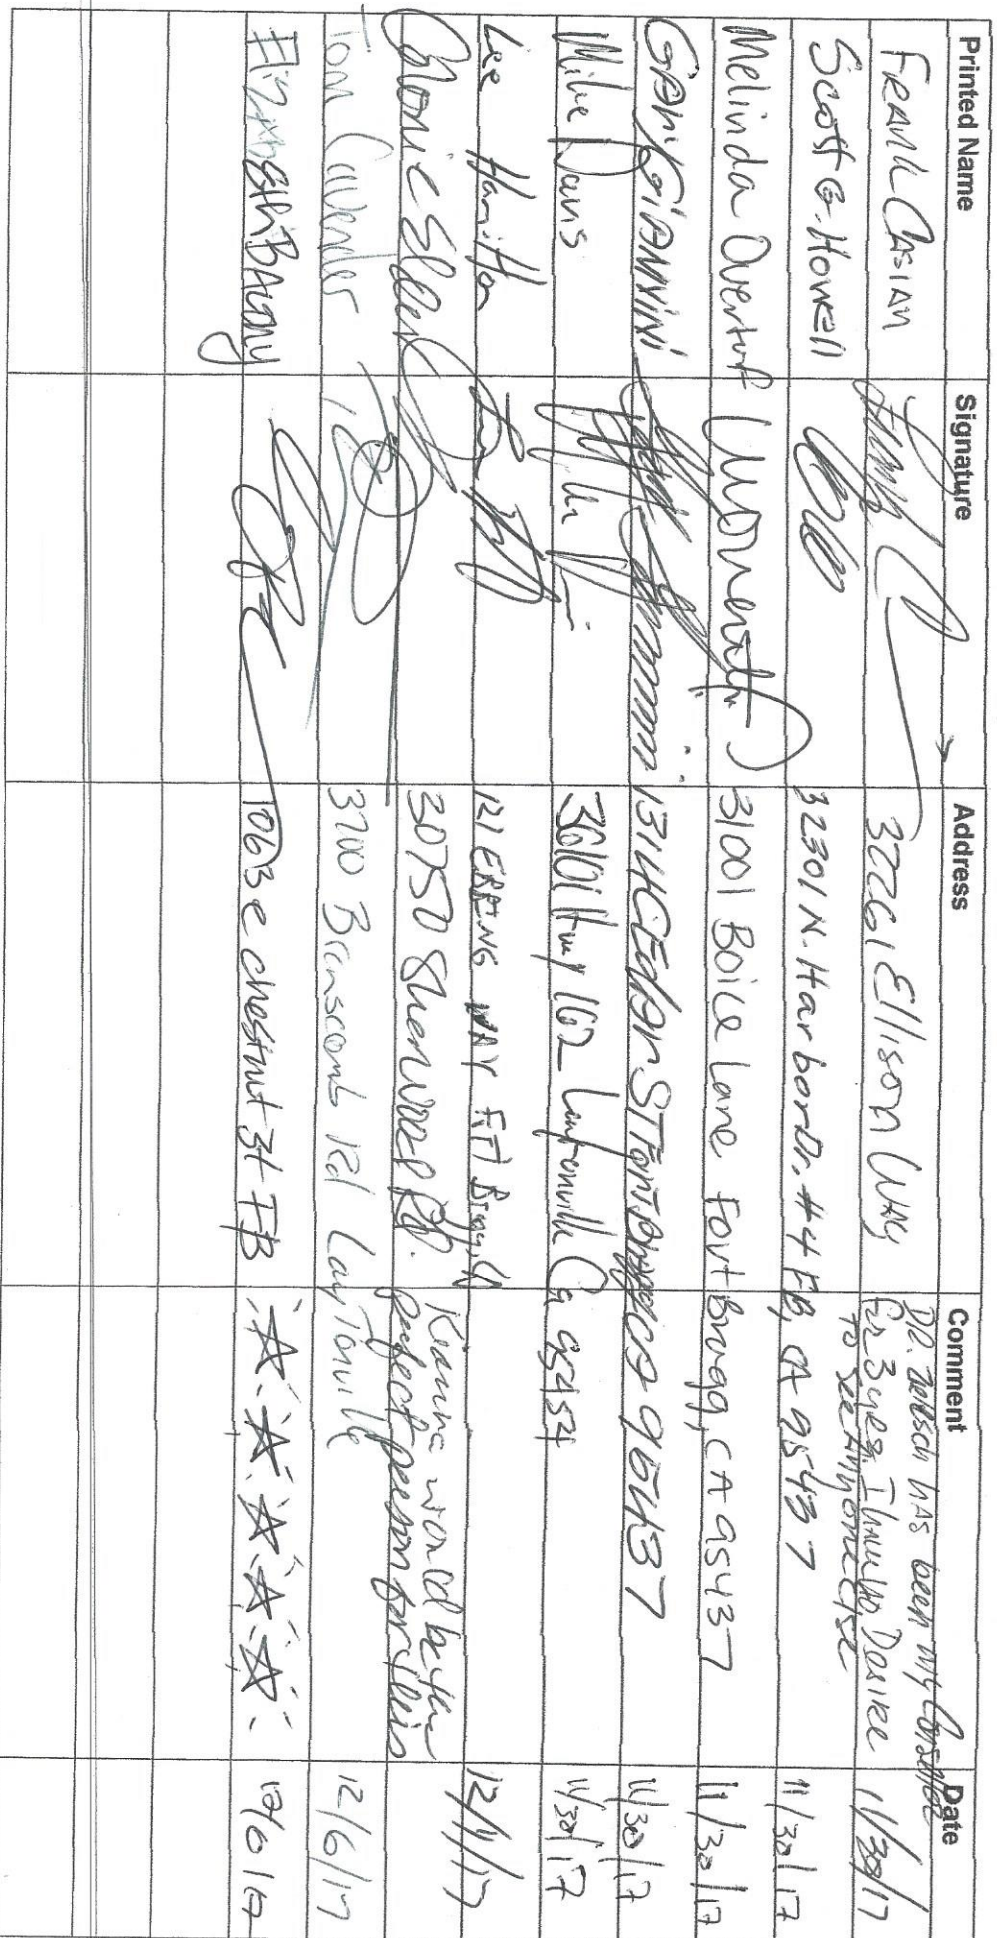 Printed Name Signature Address Comment Date
FRANK CASIAN 32261 Ellison Way DR. has been my 11/30/17
for 3 yrs. I have no Desire
TO See Anyone else
Scott G. Howell 32301 N. Harbor Dr. #4 FB, CA 95437 11/30/17
Melinda Overturf 31001 Boice Lane Fort Bragg, CA 95437 11/30/17
GARY GIANNINI 1314 CEDAR ST Fort Bragg CA 95437 11/30/17
Mike Davis Hwy 162 Ca 95454 11/30/17
Lee Hamilton 121 EBBING WAY FRT Bragg, CA
30750 Sherwood Rd. would be the 12/1/17
perfect person for this
Tom Cavender 3700 Branscomb Rd Laytonville 12/6/17
Elizabeth 1063 e chestnut St FB ☆ ☆ ☆ ☆ ☆